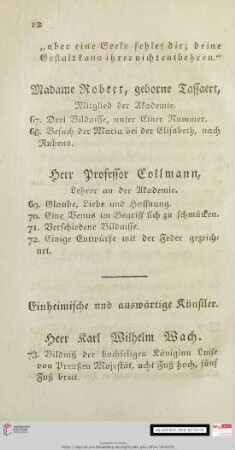 12
„aber eine Seele fehlet dir; deine
Gestalt kann ihrer nicht entbehren.“
Madame Robert, geborne Tassaert,
Mitglied der Akademie.
67. Drei Bildnisse, unter Einer Nummer.
68. Besuch der Maria bei der Elisabeth, nach
Rubens.
Herr Professor Collmann,
Lehrer an der Akademie.
69. Glaube, Liebe und Hoffnung.
70. Eine Venus im Begriff sich zu schmücken.
71. Verschiedene Bildnisse.
72. Einige Entwürfe mit der Feder gezeich-
net.
Einheimische und auswärtige Künstler.
Herr Karl Wilhelm Wach.
73. Bildniß der hochseligen Königinn Luise
von Preußen Majestät, acht Fuß hoch, fünf
Fuß breit.
UNIVERSITÄTS-
BIBLIOTHEK
HEIDELBERG
AKADEMIE DER KÜNSTE